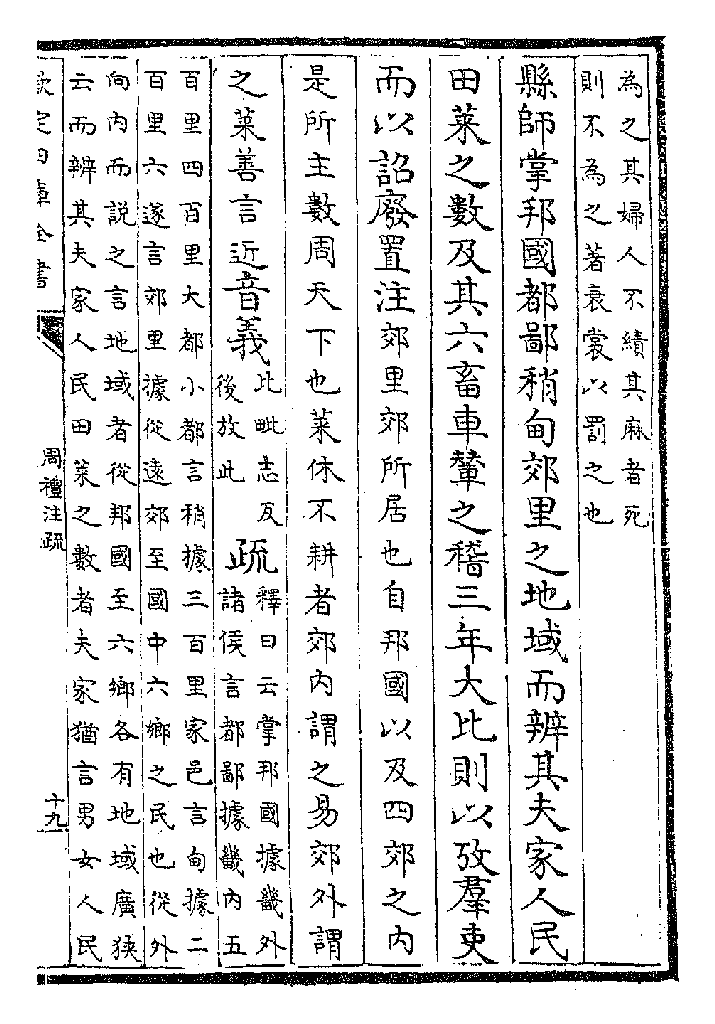 為之其婦人不績其麻者死
則不為之著衰裳以罰之也
縣師掌邦國都鄙稍甸郊里之地域而辨其夫家人民
田萊之數及其六畜車輦之稽三年大比則以攷羣吏
而以詔廢置注郊里郊所居也自邦國以及四郊之内
是所主數周天下也萊休不耕者郊内謂之易郊外謂
之萊善言近音義
比毗志反
後放此
疏
釋曰云掌邦國據畿外
諸侯言都鄙據畿内五
百里四百里大都小都言稍據三百里家邑言甸據二
百里六遂言郊里據從遠郊至國中六鄉之民也從外
向内而説之言地域者從邦國至六鄉各有地域廣狹
云而辨其夫家人民田萊之數者夫家猶言男女人民
欽定四庫全書
周禮注疏
十九